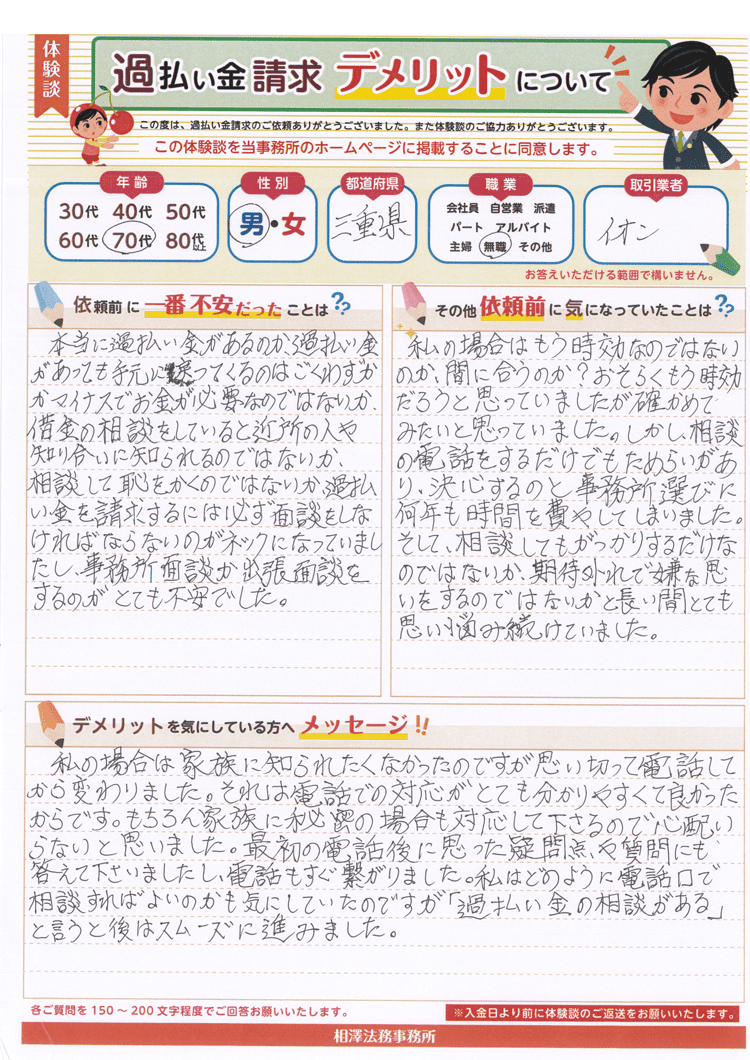 体験談
過払い金請求 デメリットについて
この度は、過払い金請求のご依頼ありがとうございました。また体験談のご協力ありがとうございます。
この体験談を当事務所のホームページに掲載することに同意します。
年齢
30代 40代 50代
60代 70代 80代以上
性別
男・女
都道府県
三重県
職業
会社員 自営業 派遣
パート アルバイト
主婦 無職 その他
取引業者
イオン
お答えいただける範囲で構いません。
依頼前に一番不安だったことは??
本当に過払い金があるのか、過払い金
があっても手元に戻ってくるのはごくわずか
かマイナスでお金が必要なのではないか、
借金の相談をしていると近所の人や
知り合いに知られるのではないか、
相談して恥をかくのではないか、過払
い金を請求するには必ず面談をしな
ければならないのがネックになっていまし
たし、事務所面談か出張面談を
するのがとても不安でした。
その他依頼前に気になっていたことは??
私の場合はもう時効なのではない
のか、間に合うのか?おそらくもう時効
だろうと思っていましたが確かめて
みたいと思っていました。しかし、相談
の電話をするだけでもためらいがあ
り、決心するのと事務所選びに
何年も時間を費やしてしまいました。
そして、相談してもがっかりするだけな
のではないか、期待外れで嫌な思
いをするのではないかと長い間とても
思い悩み続けていました。
デメリットを気にしている方へメッセージ!!
私の場合は家族に知られたくなかったのですが思い切って電話して
から変わりました。それは電話での対応がとても分かりやすくて良かった
からです。もちろん家族に秘密の場合も対応して下さるので心配い
らないと思いました。最初の電話後に思った疑問点や質問にも
答えて下さいましたし、電話もすぐ繋がりました。私はどのように電話口で
相談すればよいのかも気にしていたのですが「過払い金の相談がある」
と言うと後はスムーズに進みました。
各ご質問を150～200文字程度でご回答お願いいたします。
※入金日より前に体験談のご返送をお願いいたします。
相澤法務事務所